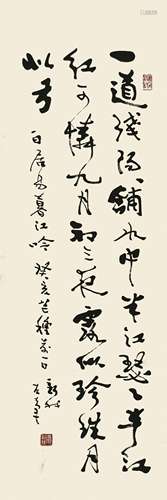 一道残阳铺水中半江瑟々半江
红可怜九月初三夜露似珍珠月
似弓
白居易暮江吟 癸亥芒种前一日